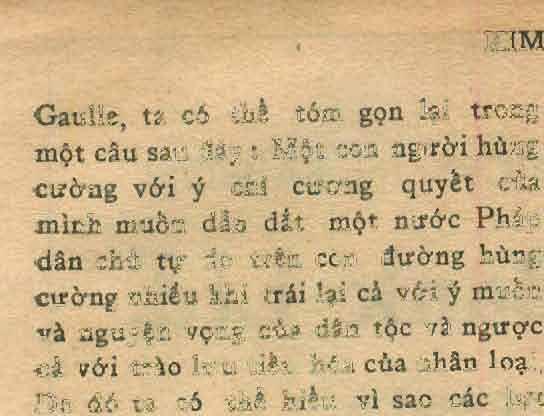 Gaulle, ta có thể tóm gọn lại trong
một câu sau đây : Một con người hùng
cường với ý chí cương quyết của
mình muốn dẫn dắt một nước Pháp
dân chủ tự do trên con đường hùng
cường nhiều khi trái lại cả với ý muốn
và nguyện vọng của dân tộc và ngược
cả với trào lưu tiến hóa của nhân loại.
Do đó ta có thể hiểu vì sao các lực